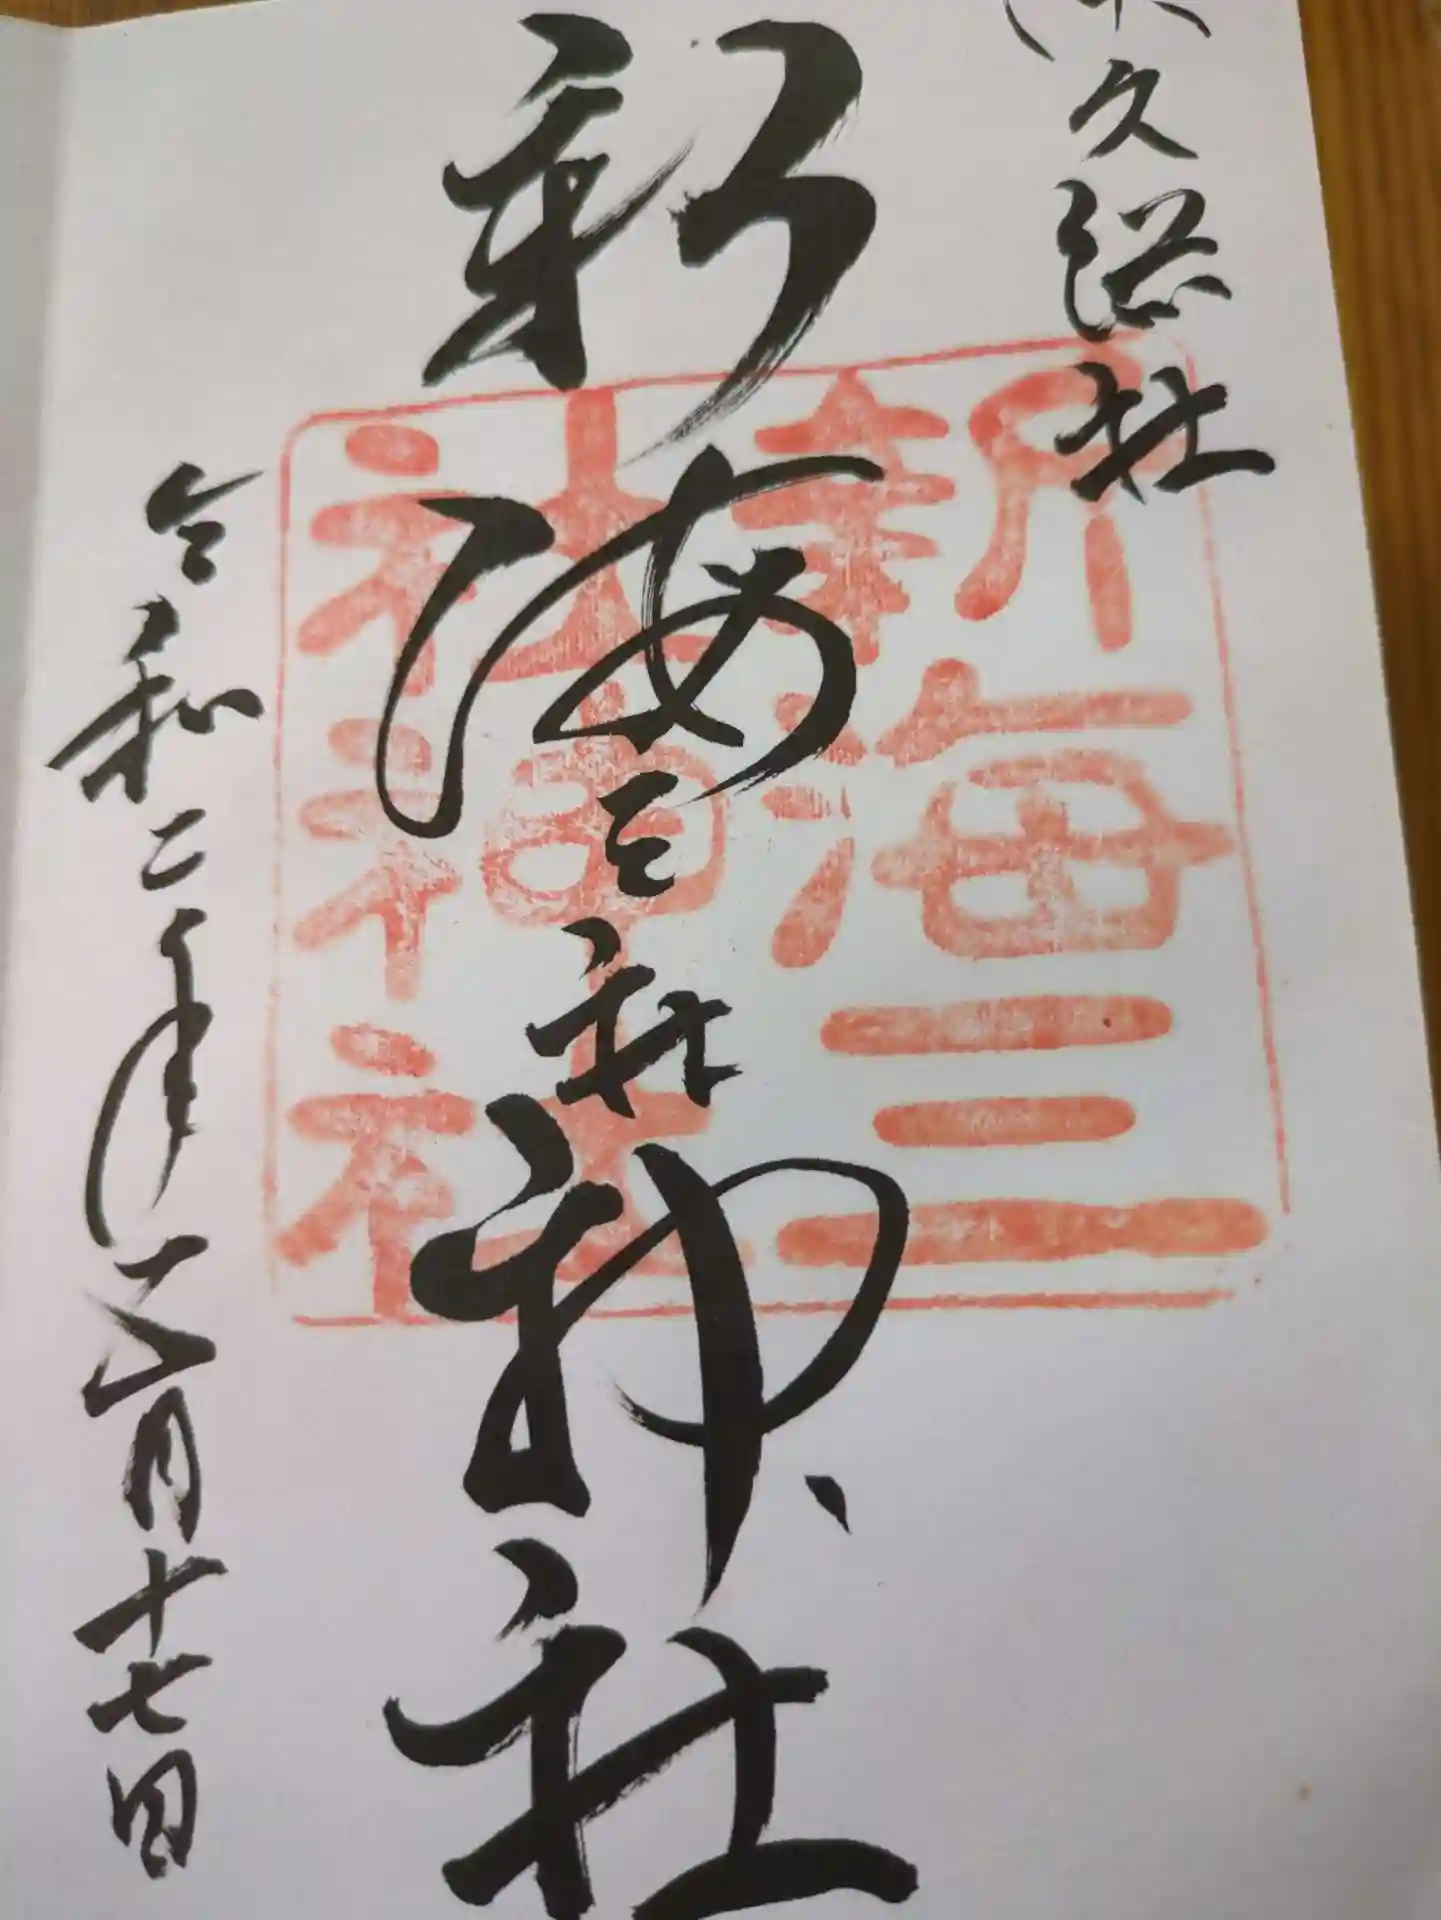 久総社
新海三社神社
令和二年六月十七日
新海三
社神社